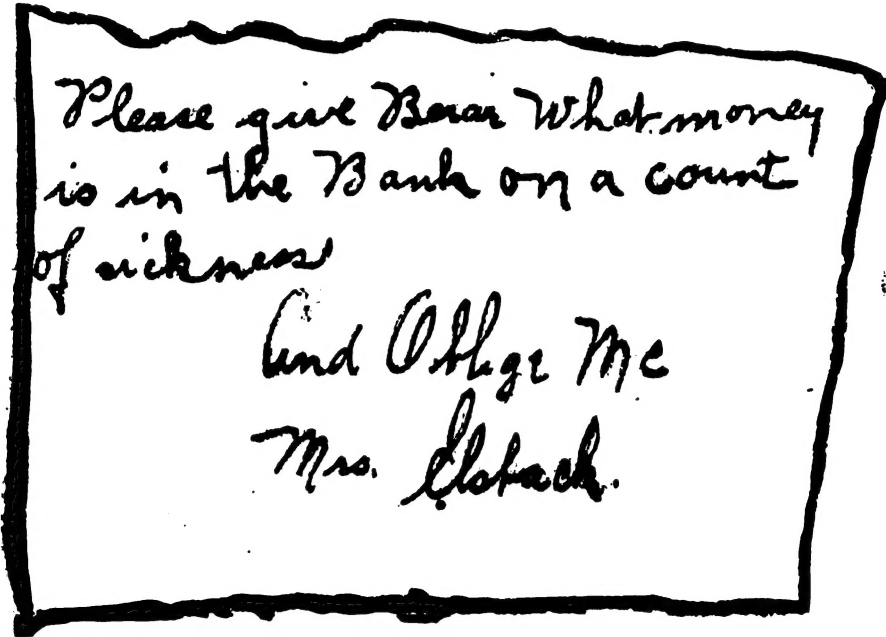 Please give Bearer What money
is in the Bank on a count
of sickness
And Oblige Me
Mrs. Elsback.